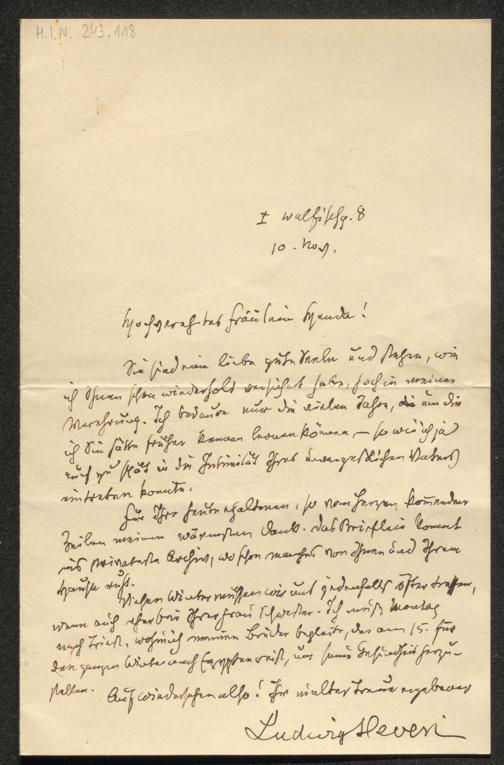 H.I.N. 243.118
I Wallfischg. 8
10. Nov.
Hochverehrtes Fräulein Thusnelda!
Sie sind eine liebe gute Seele und stehen, wie
ich Ihnen schon wiederholt versichert habe, hoch in meiner
Verehrung. Ich bedaure nur die vielen Jahre, um die
ich Sie hätte früher kennen lernen können, – so wie ich ja
auch zu spät in die Intimität Ihres unvergeßlichen Vaters
eintreten konnte.
Für Ihre heute erhaltenen, so vom Herzen kommenden
Zeilen meinen wärmsten Dank. Das Brieflein kommt
ins privateste Archiv, wo schon manches von Ihnen und Ihrem
Hause ruht.
Diesen Winter müssen wir uns jedenfalls öfter treffen,
wenn auch bei Ihrer Frau Schwester. Ich muß Montag
nach Triest, wohin ich meinen Bruder begleite, der am 15. für
den ganzen Winter nach Egypten reist, um seine Gesundheit herzu-
stellen.
Auf Wiedersehen also! Ihr in alter Treue ergebener
Ludwig Hevesi